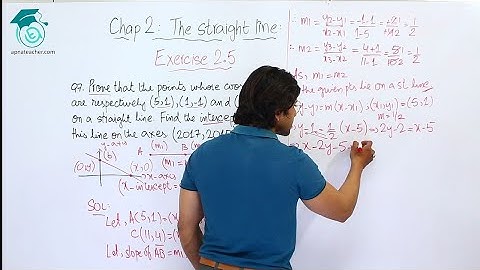 apnateacher.com
Chap 2: The straight line:
Exercise 2.5
Q7. Prove that the points whose coor
are respectively (5,1), (1,-1) and (
on a straight line. Find the intercep
this line on the axes (2017, 201
y-axis
(b)
(x,0)
x-axis
(x-intercept =
A
B
(m1
SOL:
Let, A(5,1)=(x
C(11,4)=(
Let, slope of AB = m1
∴ m1 = y2-y1/x2-x1 = -1-1/1-5 = +2/+4 = 1/2
∴ m2 = y3-y2/x3-x2 = 4+1/11-1 = 5/10 = 1/2
As, m1 = m2
the given pts lie on a st. line
y-y1 = m(x-x1), (x1,y1) = (5,1)
m=1/2
y-1 = 1/2 (x-5) ⇒ 2y-2 = x-5
⇒ x-2y-5